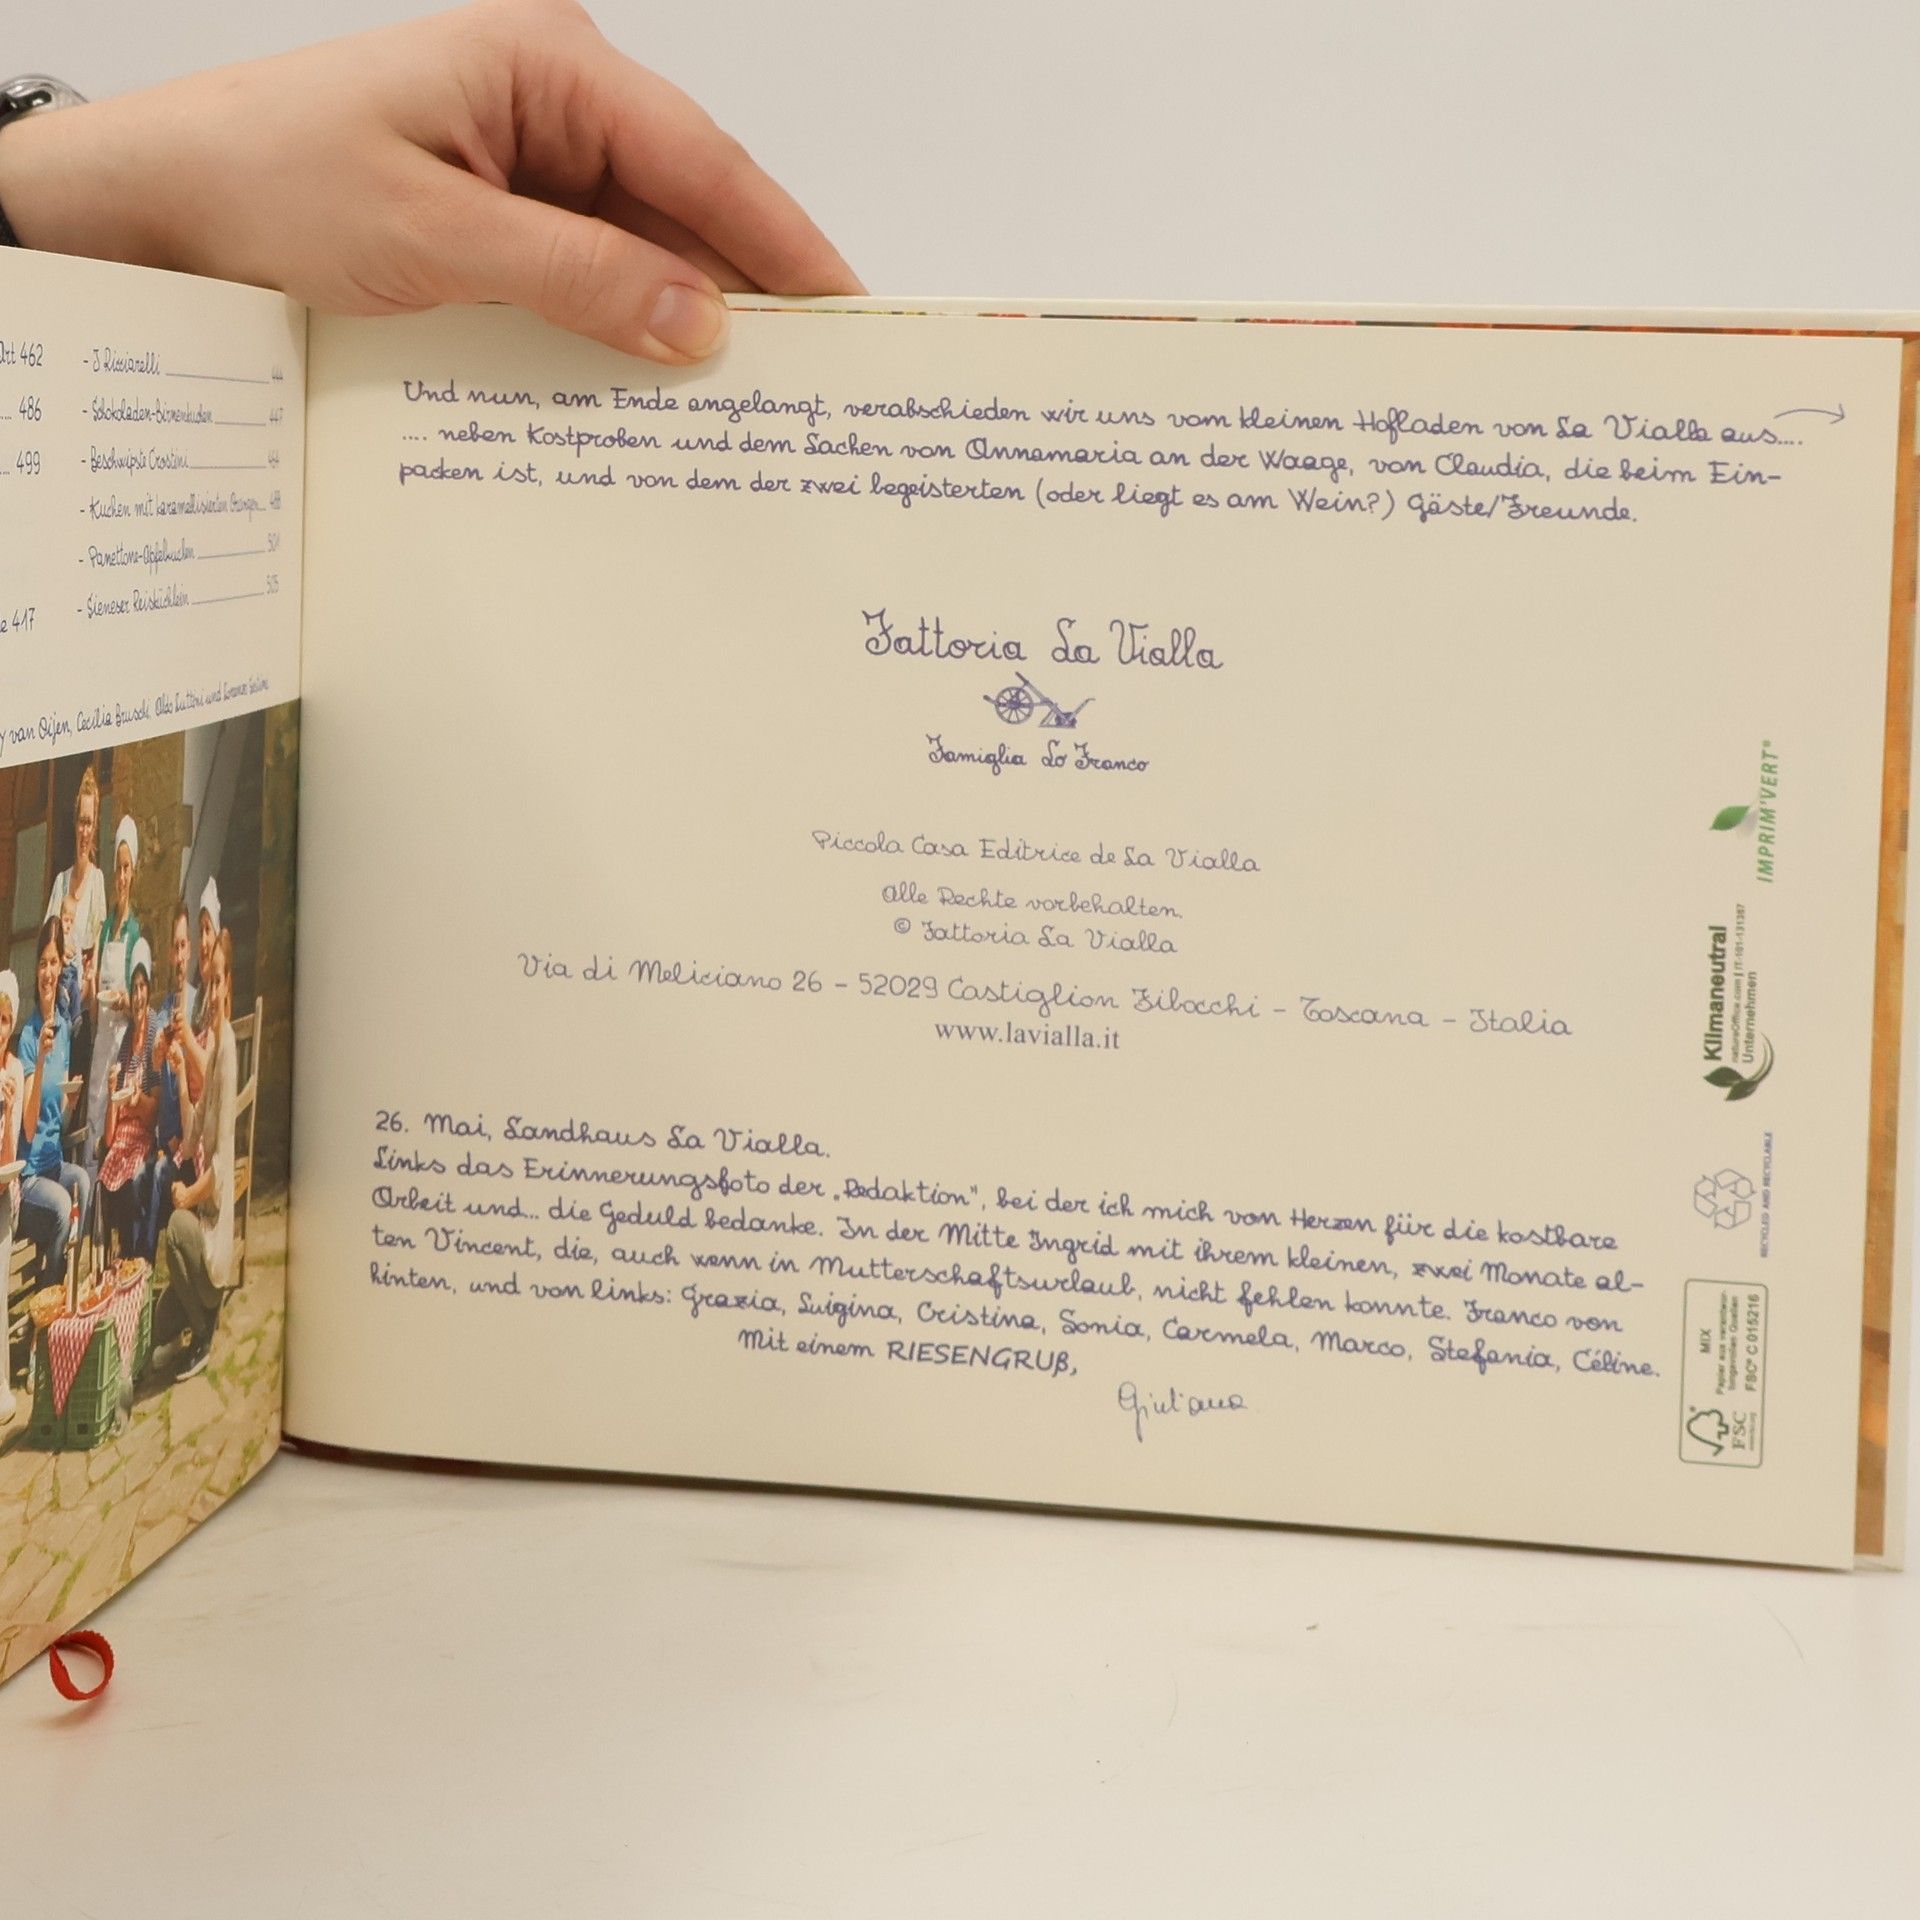 Art 462
.... 486
... 499
e 417
- I Ricciarelli 444
- Schokoladen-Birnenkuchen 447
- Beschwipste Crostini 464
- Kuchen mit karamellisierten Orangen 488
- Panettone-Apfelkuchen 501
- Sieneser Reisküchlein 505
y van Oijen, Cecilia Bruschi, Aldo und
Und nun, am Ende angelangt, verabschieden wir uns vom kleinen Hofladen von La Vialla aus....
.... neben Kostproben und dem Lachen von Annamaria an der Waage, von Claudia, die beim Ein-
packen ist, und von dem der zwei begeisterten (oder liegt es am Wein?) Gäste/Freunde.
Fattoria La Vialla
Famiglia Lo Franco
Piccola Casa Editrice de La Vialla
Alle Rechte vorbehalten.
© Fattoria La Vialla
Via di Meliciano 26 – 52029 Castiglion Fibocchi – Toscana – Italia
www.lavialla.it
26. Mai, Landhaus La Vialla.
Links das Erinnerungsfoto der „Redaktion“, bei der ich mich von Herzen für die kostbare
Arbeit und... die Geduld bedanke. In der Mitte Ingrid mit ihrem kleinen, zwei Monate al-
ten Vincent, die, auch wenn in Mutterschaftsurlaub, nicht fehlen konnte. Franco von
hinten, und von links: Grazia, Luigina, Cristina, Sonia, Carmela, Marco, Stefania, Céline.
Mit einem RIESENGRUß,
Giuliana
IMPRIM'VERT®
Klimaneutral
natureOffice.com | IT-101-131387
Unternehmen
RECYCLED AND RECYCLABLE
MIX
Papier aus verantwor-
tungsvollen Quellen
FSC® C015216
FSC